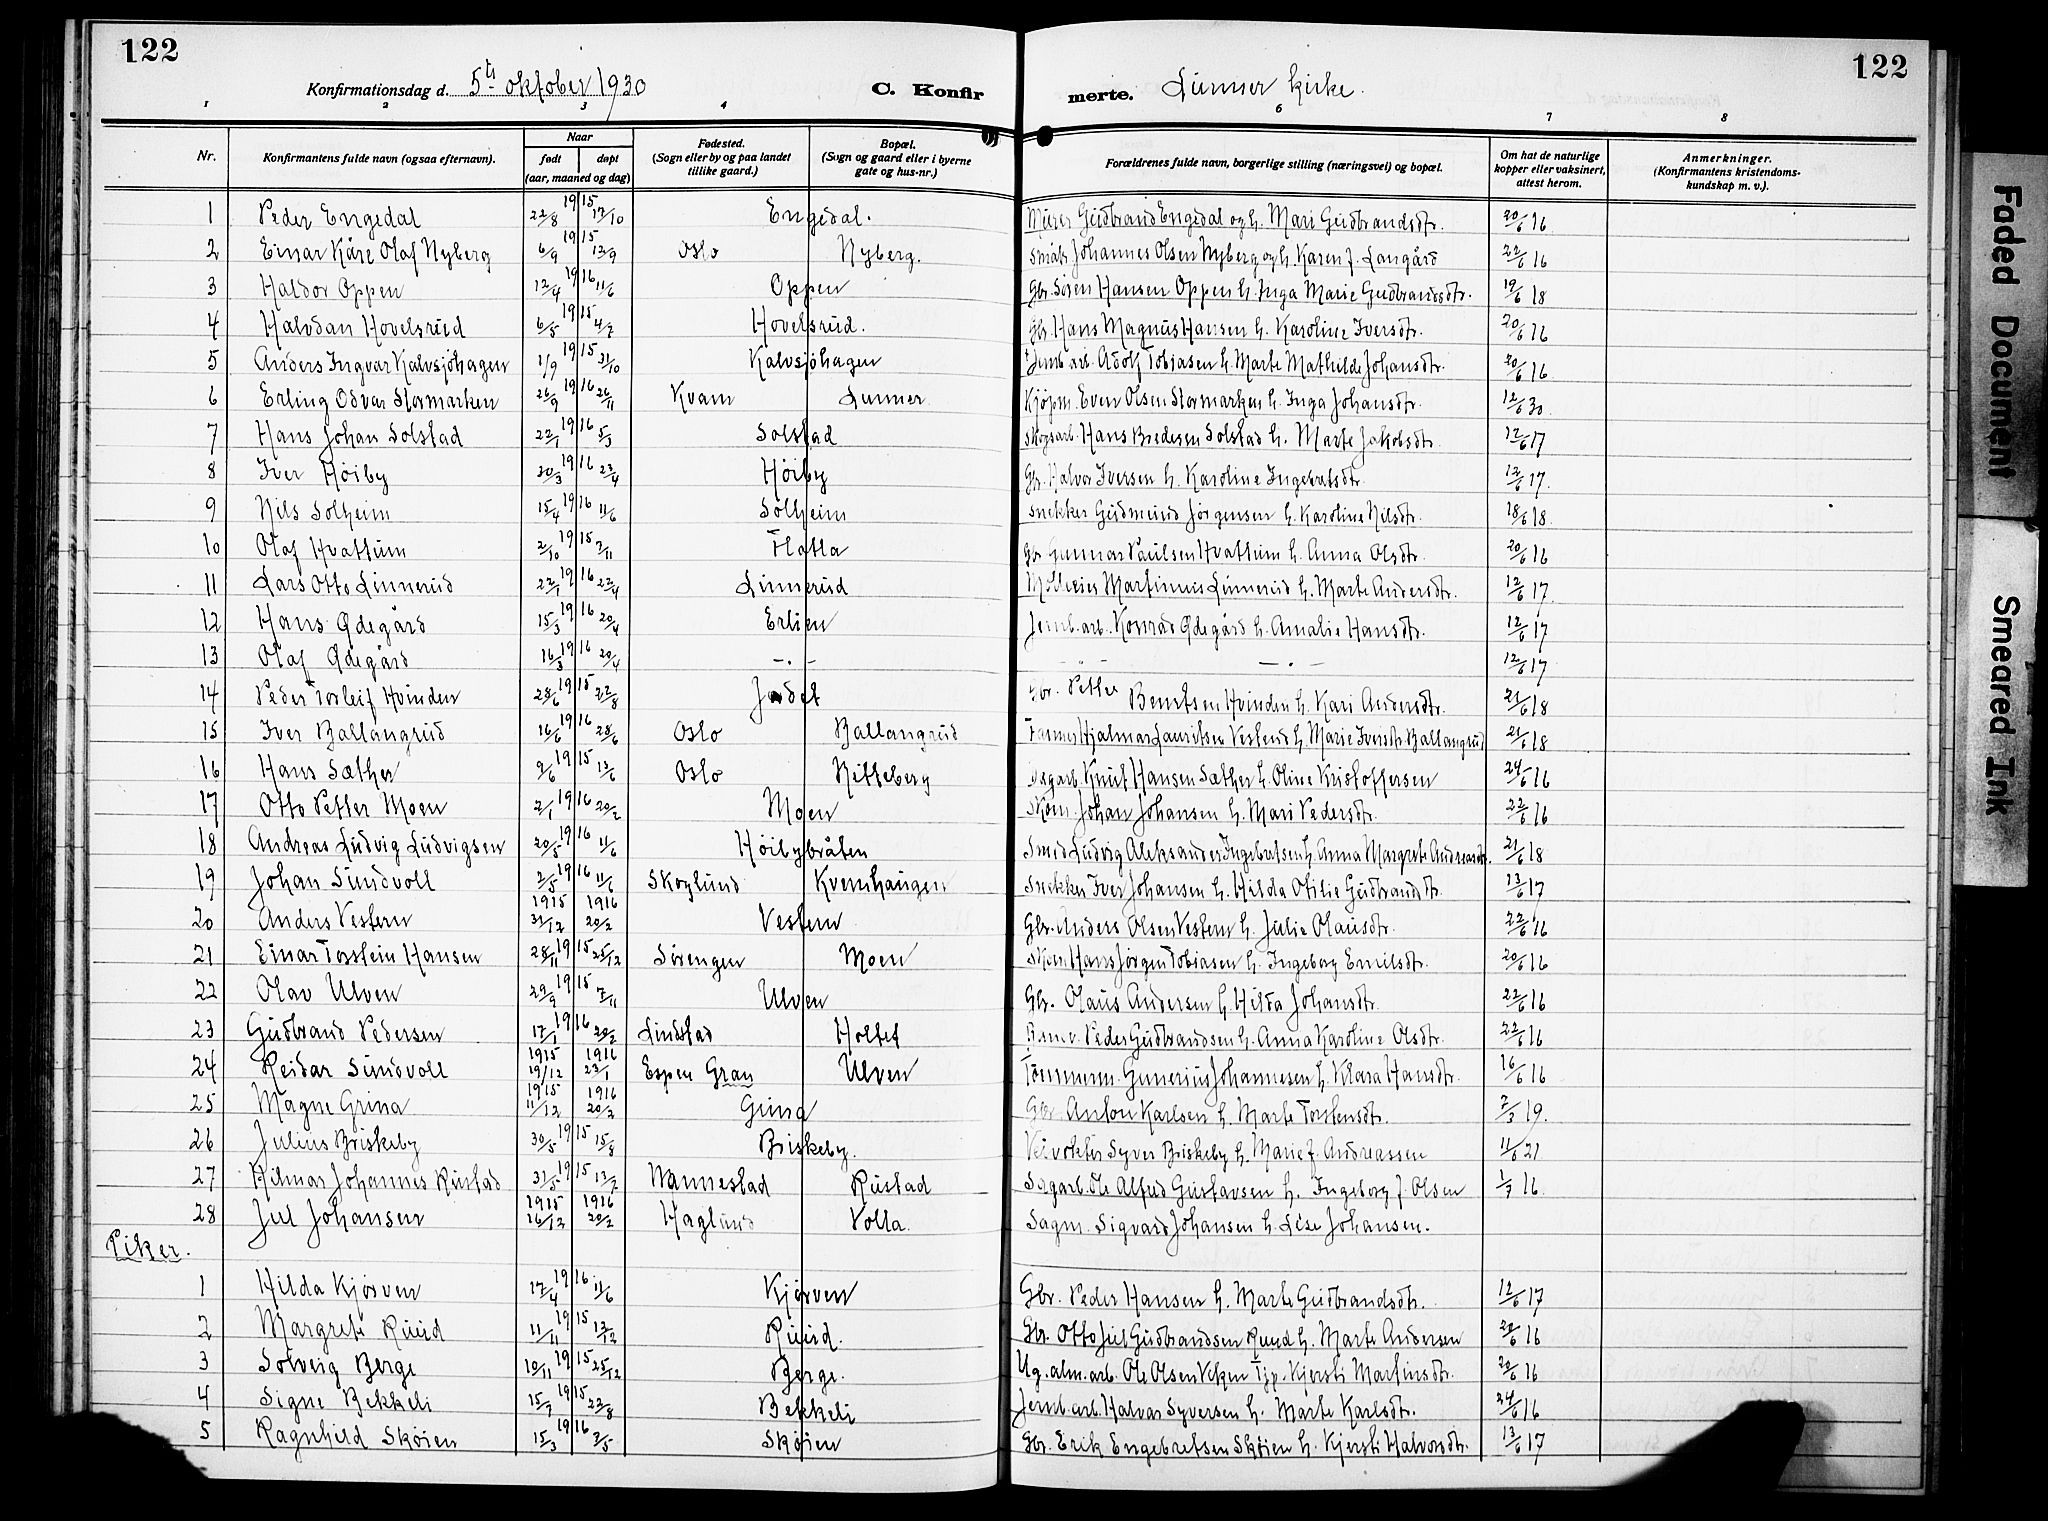 122
Konfirmationsdag d. 5te oktober 1930 C. Konfir
merte. Lunner kirke.
122
1 2 3 4 6 7 8
Nr. Konfirmantens fulde navn (ogsaa efternavn). Naar født døpt (aar, maaned og dag) Fødested. (Sogn eller by og paa landet tillike gaard.) Bopæl. (Sogn og gaard eller i byerne gate og hus-nr.) Forældrenes fulde navn, borgerlige stilling (næringsvei) og bopæl. Om hat de naturlige kopper eller vaksinert, attest herom. Anmerkninger. (Konfirmantens kristendoms-kundskap m. v.).
1 Peder Engedal 22/8 1915 17/10 Engedal. Murer Gudbrand Engedal og h. Mari Gudbrandsdtr. 20/6 16
2 Einar Kåre Olaf Nyberg 6/9 1915 13/9 Oslo Nyberg. Småbr. Johannes Olsen Nyberg og h. Karen f. Langård 22/6 16
3 Haldor Oppen 12/4 1916 11/6 Oppen Gbr. Søren Hansen Oppen h. Inga Marie Gudbrandsdtr. 19/6 18
4 Halvdan Hovelsrud 6/5 1915 4/7 Hovelsrud. Gbr. Hans Magnus Hansen h. Karoline Iversdtr. 20/6 16
5 Anders Ingvar Kalvsjøhagen 1/9 1915 31/10 Kalvsjöhagen Jernb.arb. Adolf Tobiasen h. Marte Mathilde Johansdtr. 20/6 16
6 Erling Odvar Stormarken 26/9 1916 26/11 Kvam Lunner Kjøpm. Even Olsen Stormarken h. Inga Johansdtr. 12/6 30.
7 Hans Johan Solstad 22/1 1916 5/3 Solstad Skogsarb. Hans Bredesen Solstad h. Marte Jakobsdtr. 12/6 17
8 Iver Höiby 30/3 1916 23/4 Höiby Gbr. Halvor Iversen h. Karoline Ingebretsdtr. 12/6 17.
9 Nils Solheim 15/4 1916 11/6 Solheim Snekker Gudmund Jørgensen h. Karoline Nilsdtr. 18/6 18.
10 Olaf Hvattum 2/10 1915 7/11 Flatla Gbr. Gunnar Paulsen Hvattum h. Anna Olsdtr. 20/6 16
11 Lars Otto Linnerud 22/1 1916 22/4 Linnerud Martinius Linnerud h. Marte Andersdtr. 12/6 17.
12 Hans Ødegård 15/3 1916 20/4 Erlien Jernb.arb. Konrad Ødegård h. Amalie Hansdtr. 12/6 17
13 Olaf Ødegård 16/3 1916 20/4 -"- - " - -"- 12/6 17.
14 Peder Torleif Hvinden 28/6 1915 22/8 Gbr. Petter Berntsen Hvinden h. Kari Andersdtr. 21/6 18
15 Iver Ballangrud 16/6 1916 28/6 Oslo Ballangrud Farmer Hjalmar Lauritsen Vestend h. Marie Iversdtr. Ballangrud 21/6 18
16 Hans Sæther 2/6 1915 13/6 Oslo Nitteberg Sagarb. Knut Hansen Sæther h. Oline Kristoffersen 24/6 16
17 Otto Petter Moen 2/1 1916 20/2 Moen Skom. Johan Johansen h. Mari Pedersdtr. 22/6 16
18 Andreas Ludvig Ludvigsen 20/5 1916 11/6 Höibybråten Smed Ludvig Aleksander Ingebretsen h. Anna Margrete Andreasdtr. 21/6 18
19 Johan Sundvoll 2/5 1916 11/6 Skoglund Kvernhaugen Snekker Iver Johansen h. Hilda Otilie Gudbrandsdtr. 13/6 17
20 Anders Vestern 1915 31/12 1916 20/2 Vestern Gbr. Anders Olsen Vestern h. Julie Olausdtr. 22/6 16
21 Einar Torstein Hansen 28/11 1915 25/12 Sörengen Moen Skom. Hans Jörgen Tobiasen h. Ingeborg Emilsdtr. 20/6 16
22 Olav Ulven 29/9 1915 7/11 Ulven Gbr. Olaus Andersen h. Hilda Johansdtr. 22/6 16
23 Gudbrand Pedersen 17/1 1916 20/2 Lindstad Holtet Peder Gudbrandsen h. Anna Karoline Olsdtr. 22/6 16
24 Reidar Sundvoll 1915 19/12 1916 23/1 Espen Gran Ulven Tömmerm. Gunerius Johannesen h. Klara Hansdtr. 16/6 16
25 Magne Grina 1915 11/12 1916 20/2 Grina Gbr. Anton Karlsen h. Marte Torstensdtr. 7/3 19.
26 Julius Briskeby 30/5 1915 15/8 Briskeby. Veivokter Syver Briskeby h. Marie f. Andreassen 11/6 21
27 Hilmar Johannes Rustad 31/5 1915 13/7 Wannestad Rustad Sagarb. Ole Alfred Gustavsen h. Ingeborg f. Olsen 1/7 16.
28 Jul Johansen 1915 16/12 1916 20/2 Haglund Volla. Sagm. Sigvard Johansen h. Lise Johansen.
Piker.
1 Hilda Kjørven 17/4 1916 11/6 Kjørven Gbr. Peder Hansen h. Marte Gudbrandsdtr. 12/6 17
2 Margrete Ruud 11/11 1915 12/12 Ruud. Gbr. Otto Jul Gudbrandsen Ruud h. Marte Andersen 20/6 16
3 Solveig Berge 10/11 1915 25/12 Berge. Ug. alm.arb. Ole Olsen Tjp. Kjersti Martinsdtr. 20/6 16
4 Signe Bekkeli 15/7 1915 22/8 Bekkeli Jernb.arb. Halvar Syversen h. Marte Karlsdtr. 24/6 16
5 Ragnhild Skøien 15/3 1916 7/5 Skøien Gbr. Erik Engebretsen Skøien h. Kjersti Halvorsdtr. 13/6 17
Faded Document
Smeared Ink